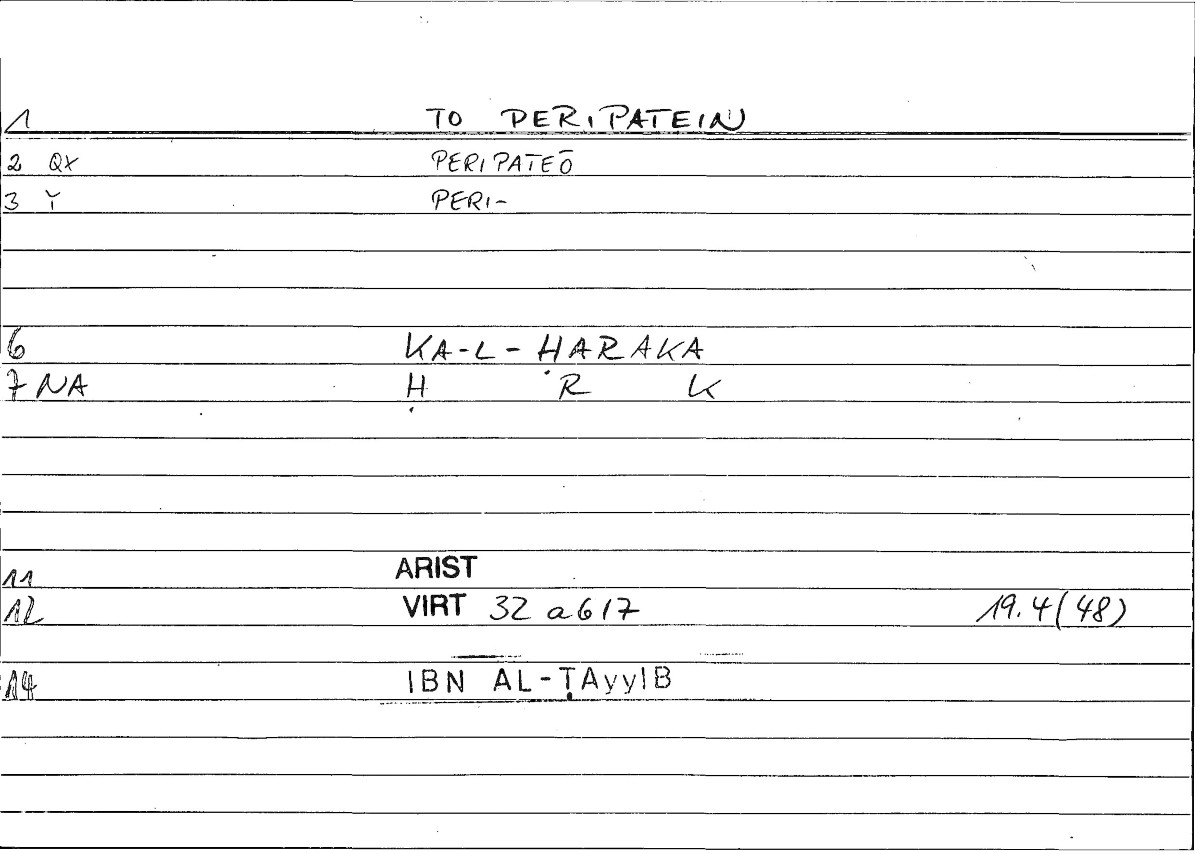 1 TO PERIPATEIN
2 QX PERIPATEŌ
3 Y PERI-
6 KA-L-ḤARAKA
7 NA Ḥ R K
11 ARIST
12 VIRT 32 a 6/7 19.4(48)
14 IBN AL-ṬAyyIB